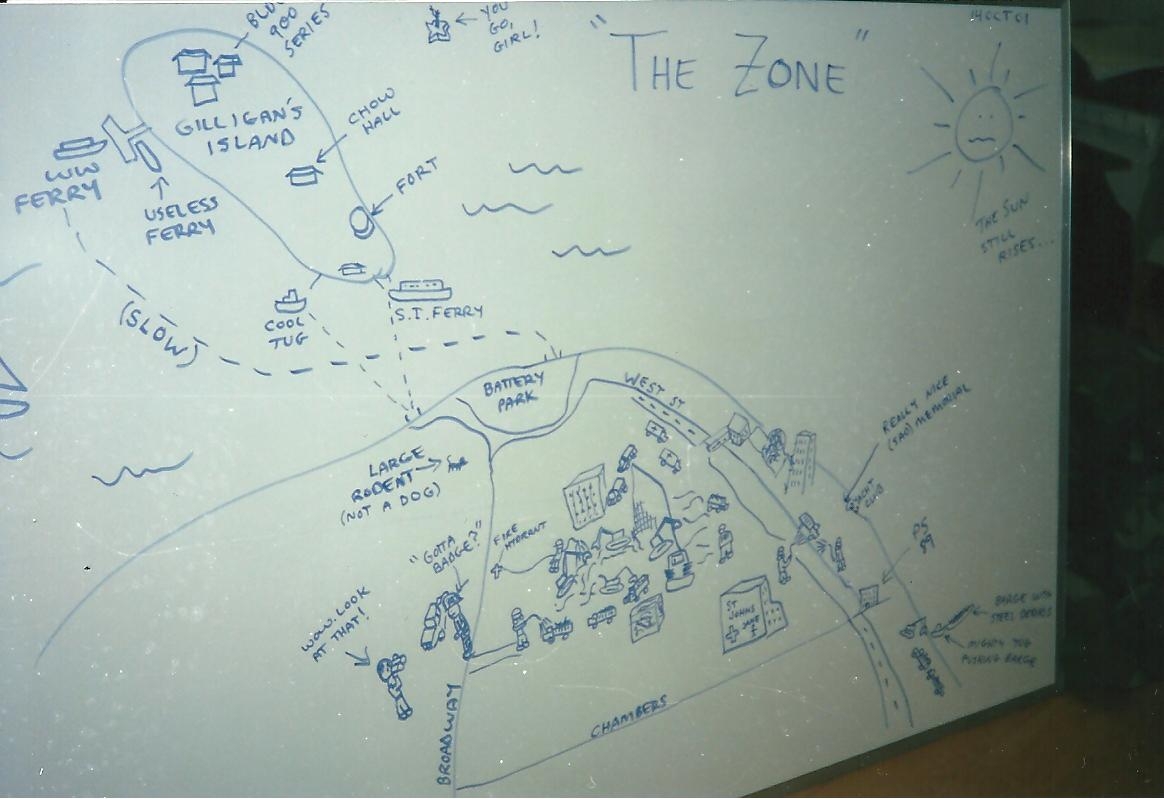 14 OCT 01
"THE ZONE"
900
SERIES
YOU
GO,
GIRL!
GILLIGAN'S
ISLAND
CHOW
HALL
WW
FERRY
USELESS
FERRY
FORT
THE SUN
STILL
RISES...
(SLOW)
COOL
TUG
S.I. FERRY
BATTERY
PARK
WEST ST
REALLY NICE
(SAD) MEMORIAL
YACHT
CLUB
LARGE
RODENT
(NOT A DOG)
"GOTTA
BADGE?"
FIRE
HYDRANT
PS
89
WOW. LOOK
AT THAT!
ST
JOHNS
BARGE WITH
STEEL DEBRIS
MIGHTY TUG
PUSHING BARGE
BROADWAY
CHAMBERS